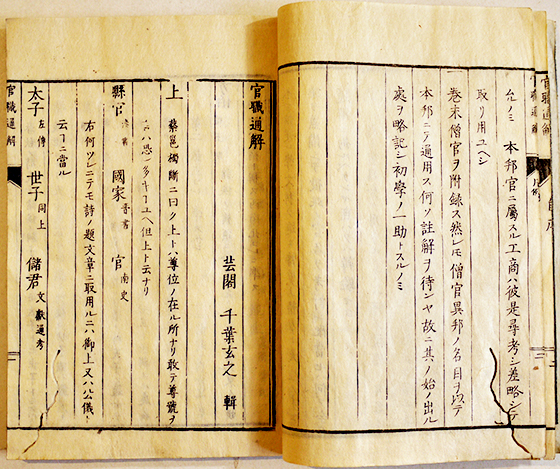 允ノミ 本邦官ニ屬スル工商ハ彼是尋考シ差略シテ
取リ用ユヘシ
一巻末僧官ヲ附録ス然レモ僧官異邦ノ名目ヲ以テ
本邦ニテ通用ス何ソ註解ヲ待ンヤ故ニ其ノ始ノ出ル
處ヲ略記シ初學ノ一助トスルノミ
官職通解
芸閣 千葉玄之 輯
上 蔡邕獨斷ニ曰ク上トハ尊位ノ在ル所ナリ敢テ尊號ヲ
但上ト云ナリ
縣官 國家 晉書 官 南史
右何ツレニテモ詩ノ題文章ニ取用ルニハ御上又ハ公儀
云フニ當ル
太子 左傳 世子 同上 儲君 文獻通考
官職通解